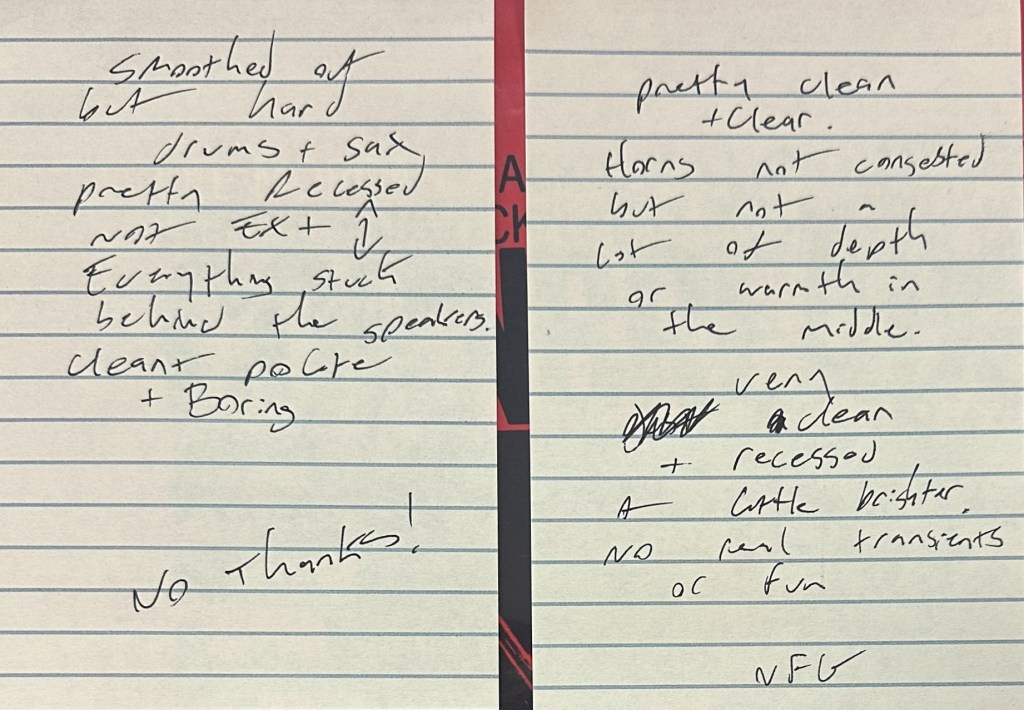 Smoothed out
but hard
drums + sax
pretty Recessed
not Ext ↕
Everything stuck
behind the speakers.
clean + polite
+ Boring
No Thanks!
A
CK
pretty clean
+ Clear.
Horns not congested
but not a
lot of depth
or warmth in
the middle.
very
clean
+ recessed
A little brighter.
NO real transients
or fun
NFG